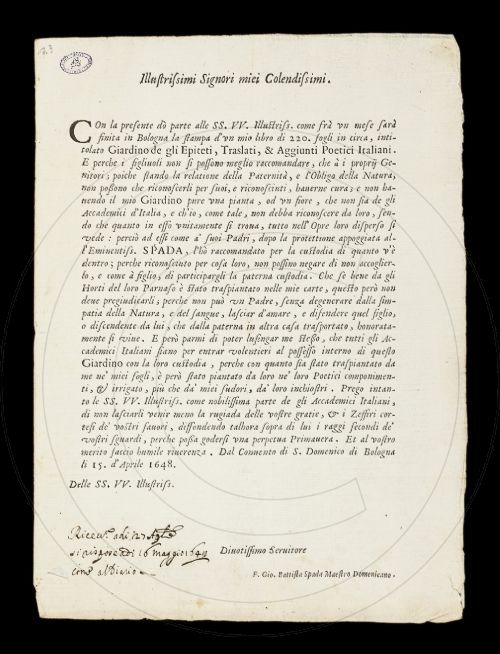 Illustrissimi Signori miei Colendissimi.
COn la presente dò parte alle SS. VV. Illustriss. come frà vn mese sarà
finita in Bologna la stampa d'vn mio libro di 220. fogli in circa, inti-
tolato Giardino de gli Epiteti, Traslati, & Aggiunti Poetici Italiani.
E perche i figliuoli non si possono meglio raccomandare, che à i proprij Ge-
nitori; poiche stando la relatione della Paternità, e l'Obligo della Natura,
non possono che riconoscerli per suoi, e riconosciuti, hauerne cura; e non ha-
uendo il mio Giardino pure vna pianta, od vn fiore, che non sia de gli
Accademici d'Italia, e ch'io, come tale, non debba riconoscere da loro, sen-
do che quanto in esso vnitamente si troua, tutto nell'Opre loro disperso si
vede: perciò ad essi come a' suoi Padri, dopo la protettione appoggiata al-
l'Eminentiss. SPADA, l'hò raccomandato per la custodia di quanto v'è
dentro; perche riconosciuto per cosa loro, non possino negare di non accoglier-
lo, e come à figlio, di participargli la paterna custodia. Che se bene da gli
Horti del loro Parnaso è stato traspiantato nelle mie carte, questo però non
deue pregiudicarli; perche non può vn Padre, senza degenerare dalla sim-
patia della Natura, e del sangue, lasciar d'amare, e difendere quel figlio,
o discendente da lui, che dalla paterna in altra casa trasportato, honorata-
mente si viue. E però parmi di poter lusingar me stesso, che tutti gli Ac-
cademici Italiani siano per entrar volentieri al possesso interno di questo
Giardino con la loro custodia, perche con quanto sia stato traspiantato da
me ne' miei fogli, è però stato piantato da loro ne' loro Poetici componimen-
ti, & irrigato, più che da' miei sudori, da' loro inchiostri. Prego intan-
to le SS. VV. Illustriss. come nobilissima parte de gli Accademici Italiani,
di non lasciarli venir meno la rugiada delle vostre gratie, & i Zeffiri cor-
tesi de' vostri fauori, diffondendo talhora sopra di lui i raggi fecondi de'
vostri sguardi, perche possa godersi vna perpetua Primauera. Et al vostro
merito faccio humile riuerenza. Dal Conuento di S. Domenico di Bologna
li 15. d'Aprile 1648.
Delle SS. VV. Illustriss.
Diuotissimo Seruitore
F. Gio. Battista Spada Maestro Domenicano.